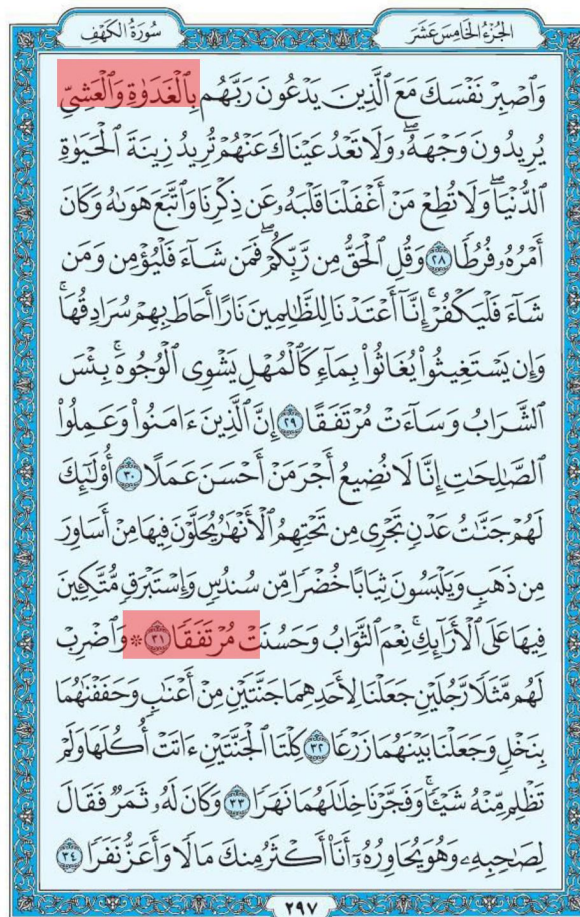 الجُزْءُ الخَامِسَ عَشَرَ
سُورَةُ الكَهْفِ
وَٱصْبِرْ نَفْسَكَ مَعَ ٱلَّذِينَ يَدْعُونَ رَبَّهُم بِٱلْغَدَوٰةِ وَٱلْعَشِىِّ
يُرِيدُونَ وَجْهَهُۥۖ وَلَا تَعْدُ عَيْنَاكَ عَنْهُمْ تُرِيدُ زِينَةَ ٱلْحَيَوٰةِ
ٱلدُّنْيَاۖ وَلَا تُطِعْ مَنْ أَغْفَلْنَا قَلْبَهُۥ عَن ذِكْرِنَا وَٱتَّبَعَ هَوَىٰهُ وَكَانَ
أَمْرُهُۥ فُرُطًا ٢٨ وَقُلِ ٱلْحَقُّ مِن رَّبِّكُمْۖ فَمَن شَآءَ فَلْيُؤْمِن وَمَن
شَآءَ فَلْيَكْفُرْۚ إِنَّآ أَعْتَدْنَا لِلظَّٰلِمِينَ نَارًا أَحَاطَ بِهِمْ سُرَادِقُهَاۚ
وَإِن يَسْتَغِيثُوا۟ يُغَاثُوا۟ بِمَآءٍ كَٱلْمُهْلِ يَشْوِى ٱلْوُجُوهَۚ بِئْسَ
ٱلشَّرَابُ وَسَآءَتْ مُرْتَفَقًا ٢٩ إِنَّ ٱلَّذِينَ ءَامَنُوا۟ وَعَمِلُوا۟
ٱلصَّٰلِحَٰتِ إِنَّا لَا نُضِيعُ أَجْرَ مَنْ أَحْسَنَ عَمَلًا ٣٠ أُو۟لَٰٓئِكَ
لَهُمْ جَنَّٰتُ عَدْنٍ تَجْرِى مِن تَحْتِهِمُ ٱلْأَنْهَٰرُ يُحَلَّوْنَ فِيهَا مِنْ أَسَاوِرَ
مِن ذَهَبٍ وَيَلْبَسُونَ ثِيَابًا خُضْرًا مِّن سُندُسٍ وَإِسْتَبْرَقٍ مُّتَّكِـِٔينَ
فِيهَا عَلَى ٱلْأَرَآئِكِۚ نِعْمَ ٱلثَّوَابُ وَحَسُنَتْ مُرْتَفَقًا ٣١ ۞ وَٱضْرِبْ
لَهُم مَّثَلًا رَّجُلَيْنِ جَعَلْنَا لِأَحَدِهِمَا جَنَّتَيْنِ مِنْ أَعْنَٰبٍ وَحَفَفْنَٰهُمَا
بِنَخْلٍ وَجَعَلْنَا بَيْنَهُمَا زَرْعًا ٣٢ كِلْتَا ٱلْجَنَّتَيْنِ ءَاتَتْ أُكُلَهَا وَلَمْ
تَظْلِم مِّنْهُ شَيْـًٔاۚ وَفَجَّرْنَا خِلَٰلَهُمَا نَهَرًا ٣٣ وَكَانَ لَهُۥ ثَمَرٌ فَقَالَ
لِصَٰحِبِهِۦ وَهُوَ يُحَاوِرُهُۥٓ أَنَا۠ أَكْثَرُ مِنكَ مَالًا وَأَعَزُّ نَفَرًا ٣٤
٢٩٧